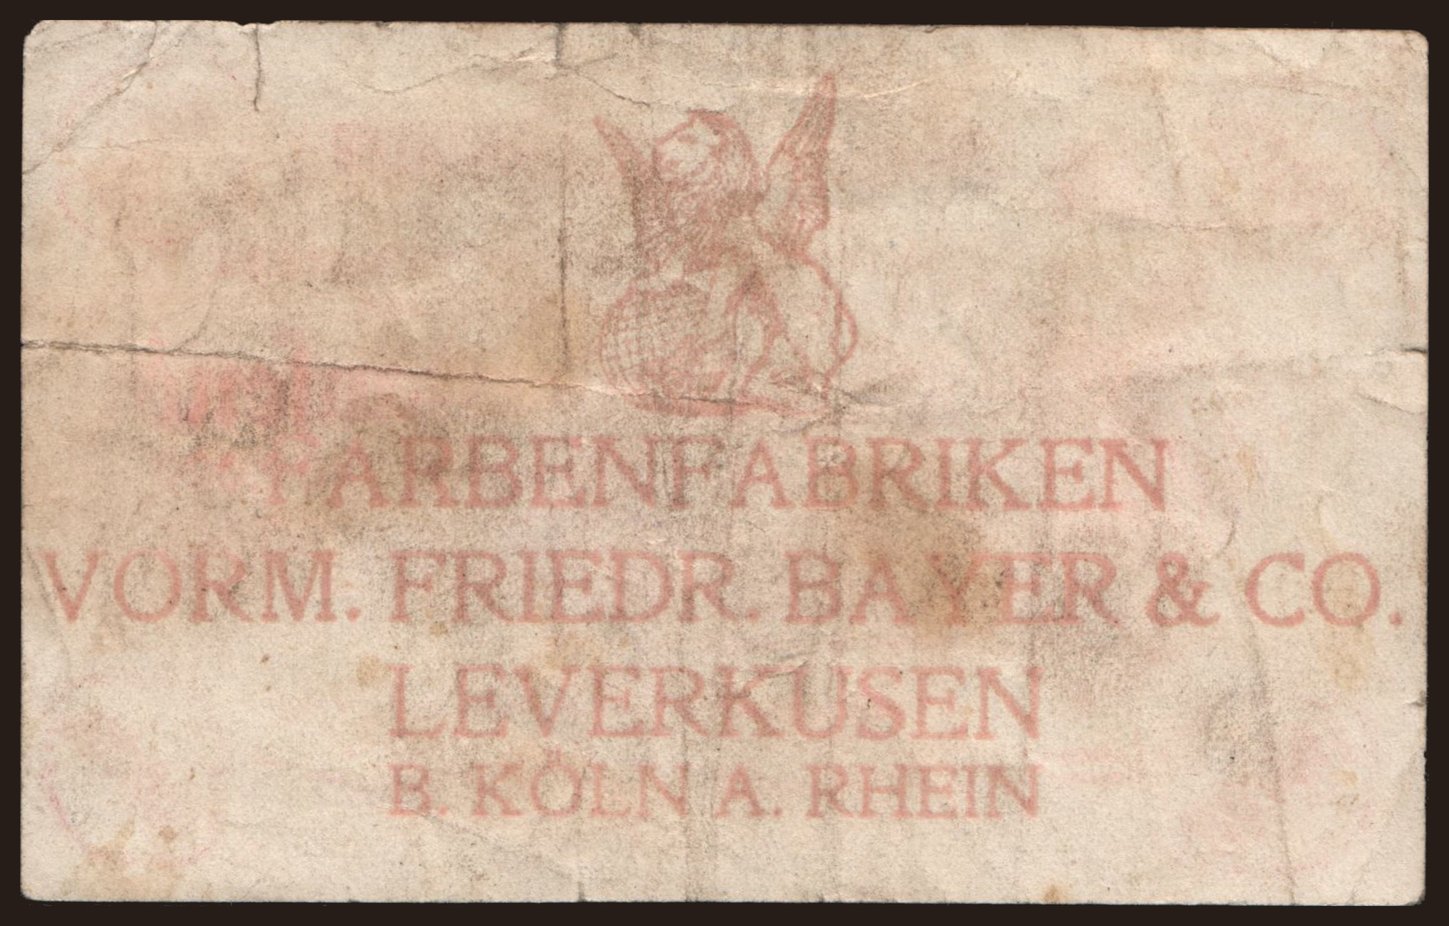 FARBENFABRIKEN
VORM. FRIEDR. BAYER & CO.
LEVERKUSEN
B. KÖLN A. RHEIN